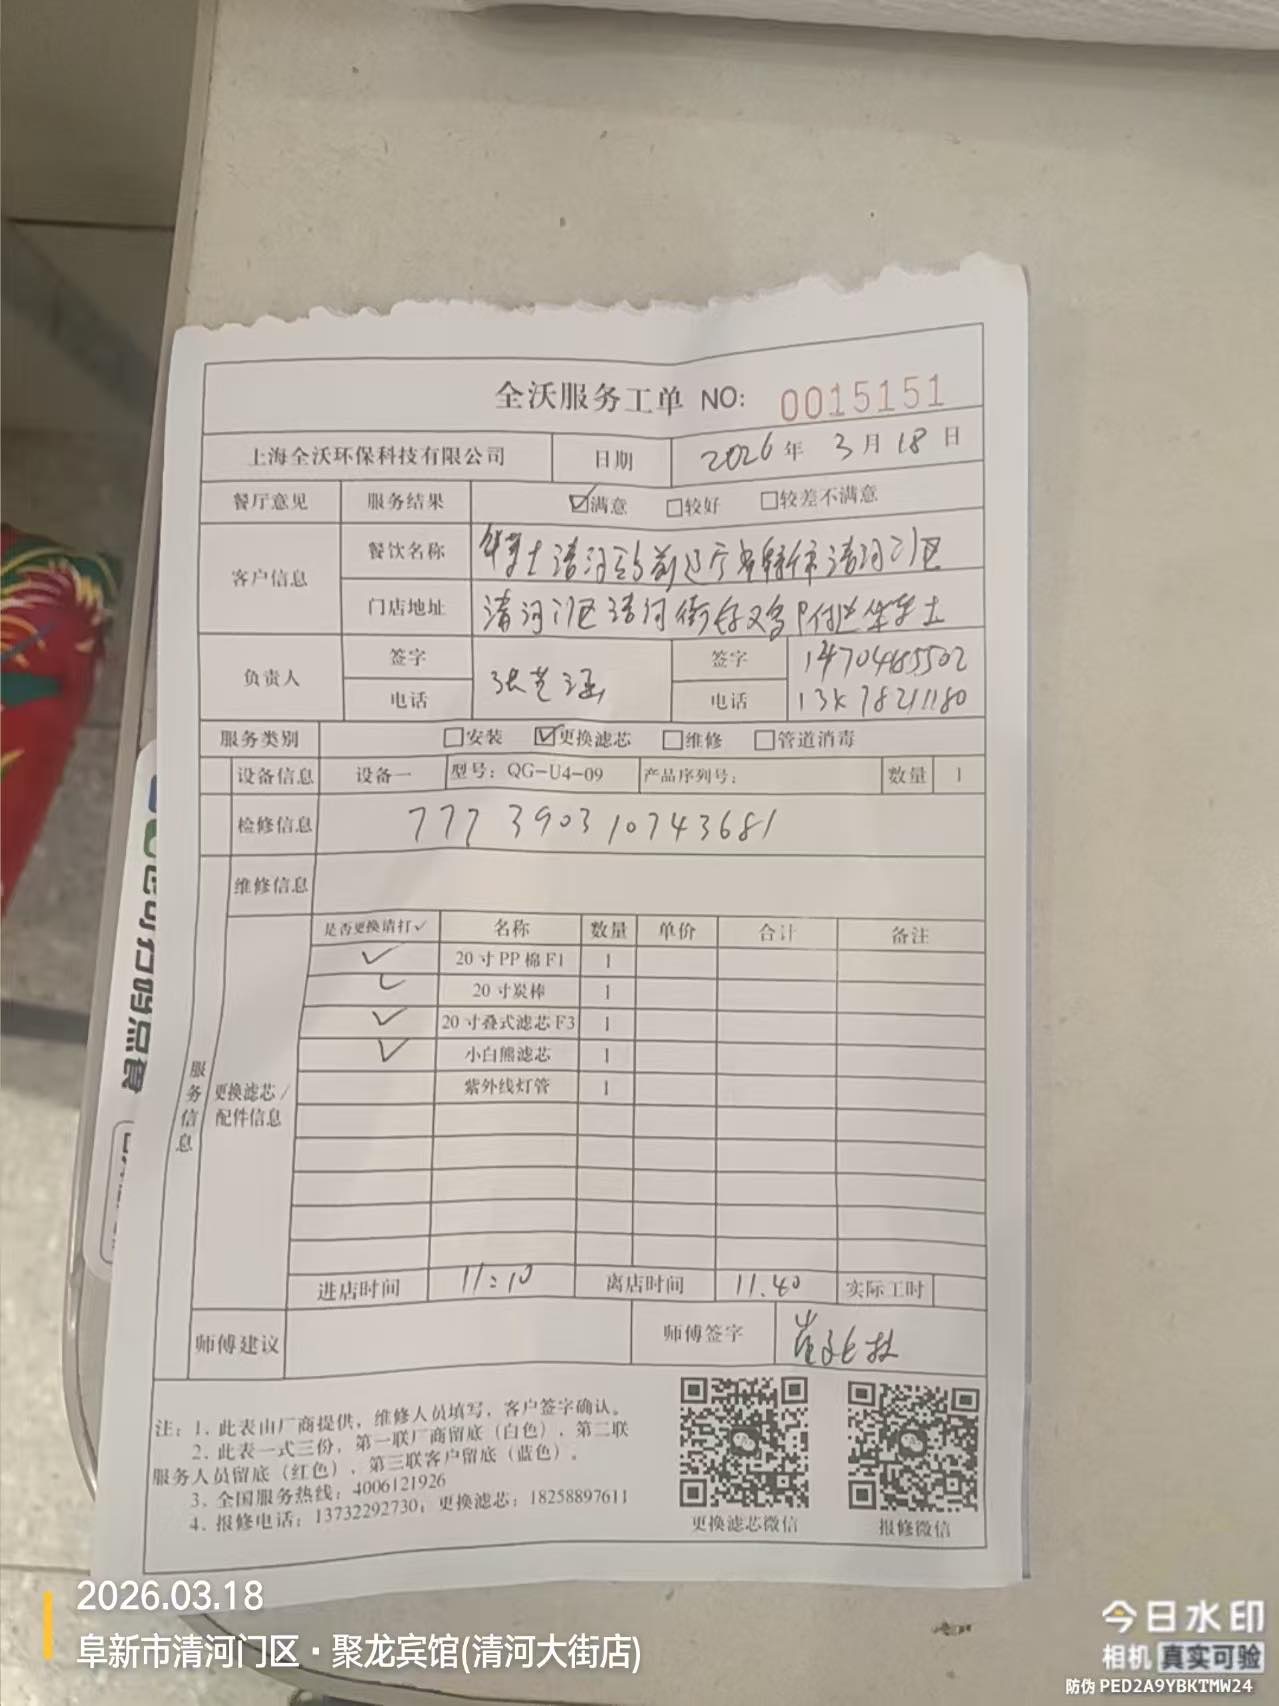 全沃服务工单 NO: 0015151
上海全沃环保科技有限公司 日期 2026年 3月18日
餐厅意见 服务结果 ☑满意 □较好 □较差不满意
客户信息 餐饮名称 华莱士清河 辽宁省阜新市清河门区
门店地址 清河门区清河街 附近华莱士
负责人 签字 张艺涵 签字 14704185502
电话 电话 78211180
服务类别 □安装 ☑更换滤芯 □维修 □管道消毒
设备信息 设备一 型号: QG-U4-09 产品序列号: 数量 1
检修信息 777 3903 10743681
维修信息
是否更换请打✓ 名称 数量 单价 合计 备注
✓ 20寸PP棉F1 1
✓ 20寸炭棒 1
✓ 20寸叠式滤芯F3 1
✓ 小白熊滤芯 1
紫外线灯管 1
服务信息
更换滤芯/
配件信息
进店时间 11:10 离店时间 11.40 实际工时
师傅建议 师傅签字 崔
注: 1. 此表由厂商提供, 维修人员填写, 客户签字确认。
2. 此表一式三份, 第一联厂商留底(白色), 第二联
服务人员留底(红色), 第三联客户留底(蓝色)。
3. 全国服务热线: 4006121926
4. 报修电话: 13732292730; 更换滤芯: 18258897611
更换滤芯微信 报修微信
扫码点餐
2026.03.18
阜新市清河门区·聚龙宾馆(清河大街店)
今日水印
相机 真实可验
防伪 PED2A9YBKTMW24